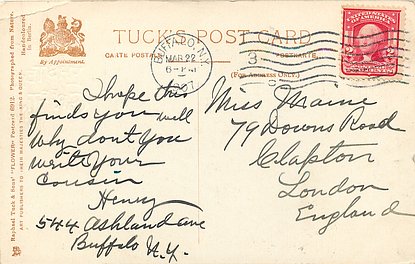 TUCK'S POST CARD
CARTE POSTALE
(FOR ADDRESS ONLY.)
By Appointment.
Raphael Tuck & Sons' "FLOWER" Postcard
ART PUBLISHERS TO THEIR MAJESTIES THE KING & QUEEN.
Photographed from Nature.
Handcoloured
in Berlin.
BUFFALO, N.Y.
MAR 22
6-PM
1907
3
I hope this
finds you well
why dont you
write Your
Cousin
Henry
544 Ashland ave
Buffalo N.Y.
Miss Maine
79 Downs Road
Clapton
London
England